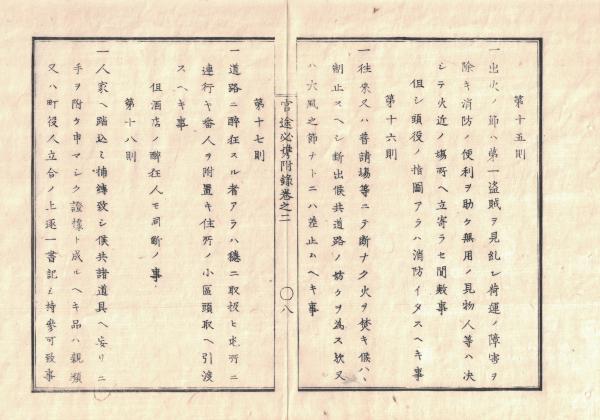 第十五則
一出火ノ節ハ第一盗賊ヲ見乱シ荷運ノ障害ヲ
除キ消防ノ便利ヲ助ケ無用ノ見物人等ハ决
シテ火近ノ場所ヘ立寄ラセ間敷事
但シ頭役ノ指圖アラハ消防イタスヘキ事
第十六則
一往來又ハ普請場等ニテ断ナク火ヲ焚キ候ハヽ
制止スヘシ断出候共道路ノ妨ケヲ為ス歟又
ハ大風之節ナトニハ差止ムヘキ事
官途必携附錄巻之二
〇八
第十七則
一道路ニ醉狂スル者アラハ穏ニ取扱ヒ屯所ニ
連行キ番人ヲ附置キ住所ノ小區頭取ヘ引渡
スヘキ事
但酒店ノ醉狂人モ同断ノ事
第十八則
一人家ヘ踏込ミ捕縛致シ候共諸道具ヘ妄リニ
手ヲ附ケ申マシク證據ト成ルヘキ品ハ親類
又ハ町役人立合ノ上逐一書記シ持參可致事